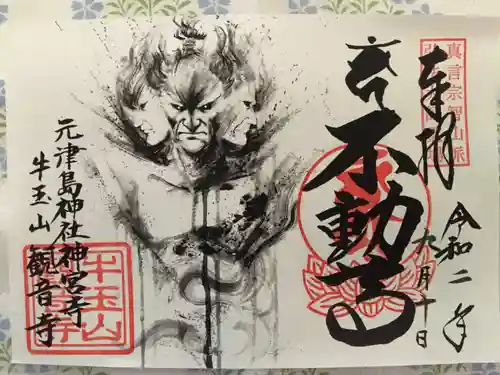 真言宗智山派
奉拝
令和二年
九月十日
不動尊
元津島神社神宮寺
牛玉山観音寺
牛玉山